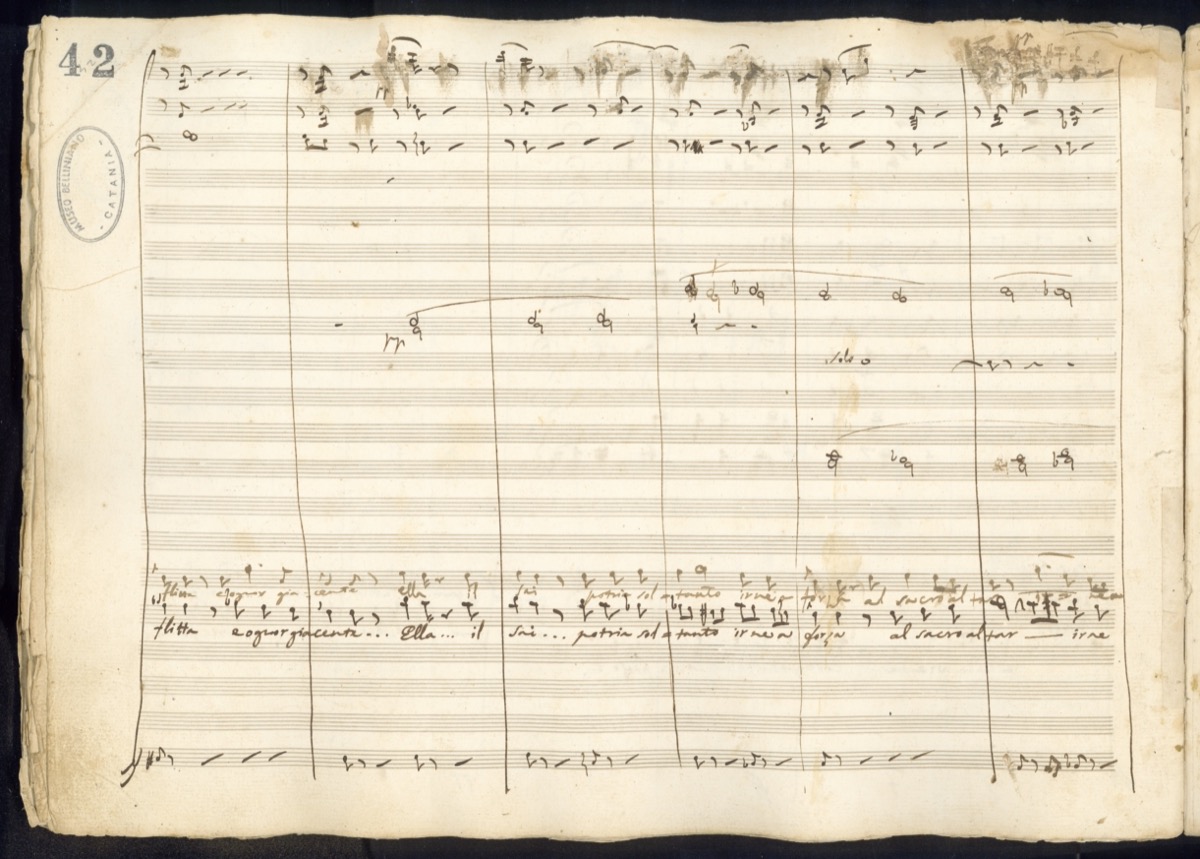 42
MUSEO BELLINIANO
- CATANIA -
pp
solo
flitta e ognor giacente ella il sai potria sol tanto irne a forza al sacro altar
flitta e ognor giacente... Ella... il sai... potria sol tanto irne a forza al sacro altar — irne